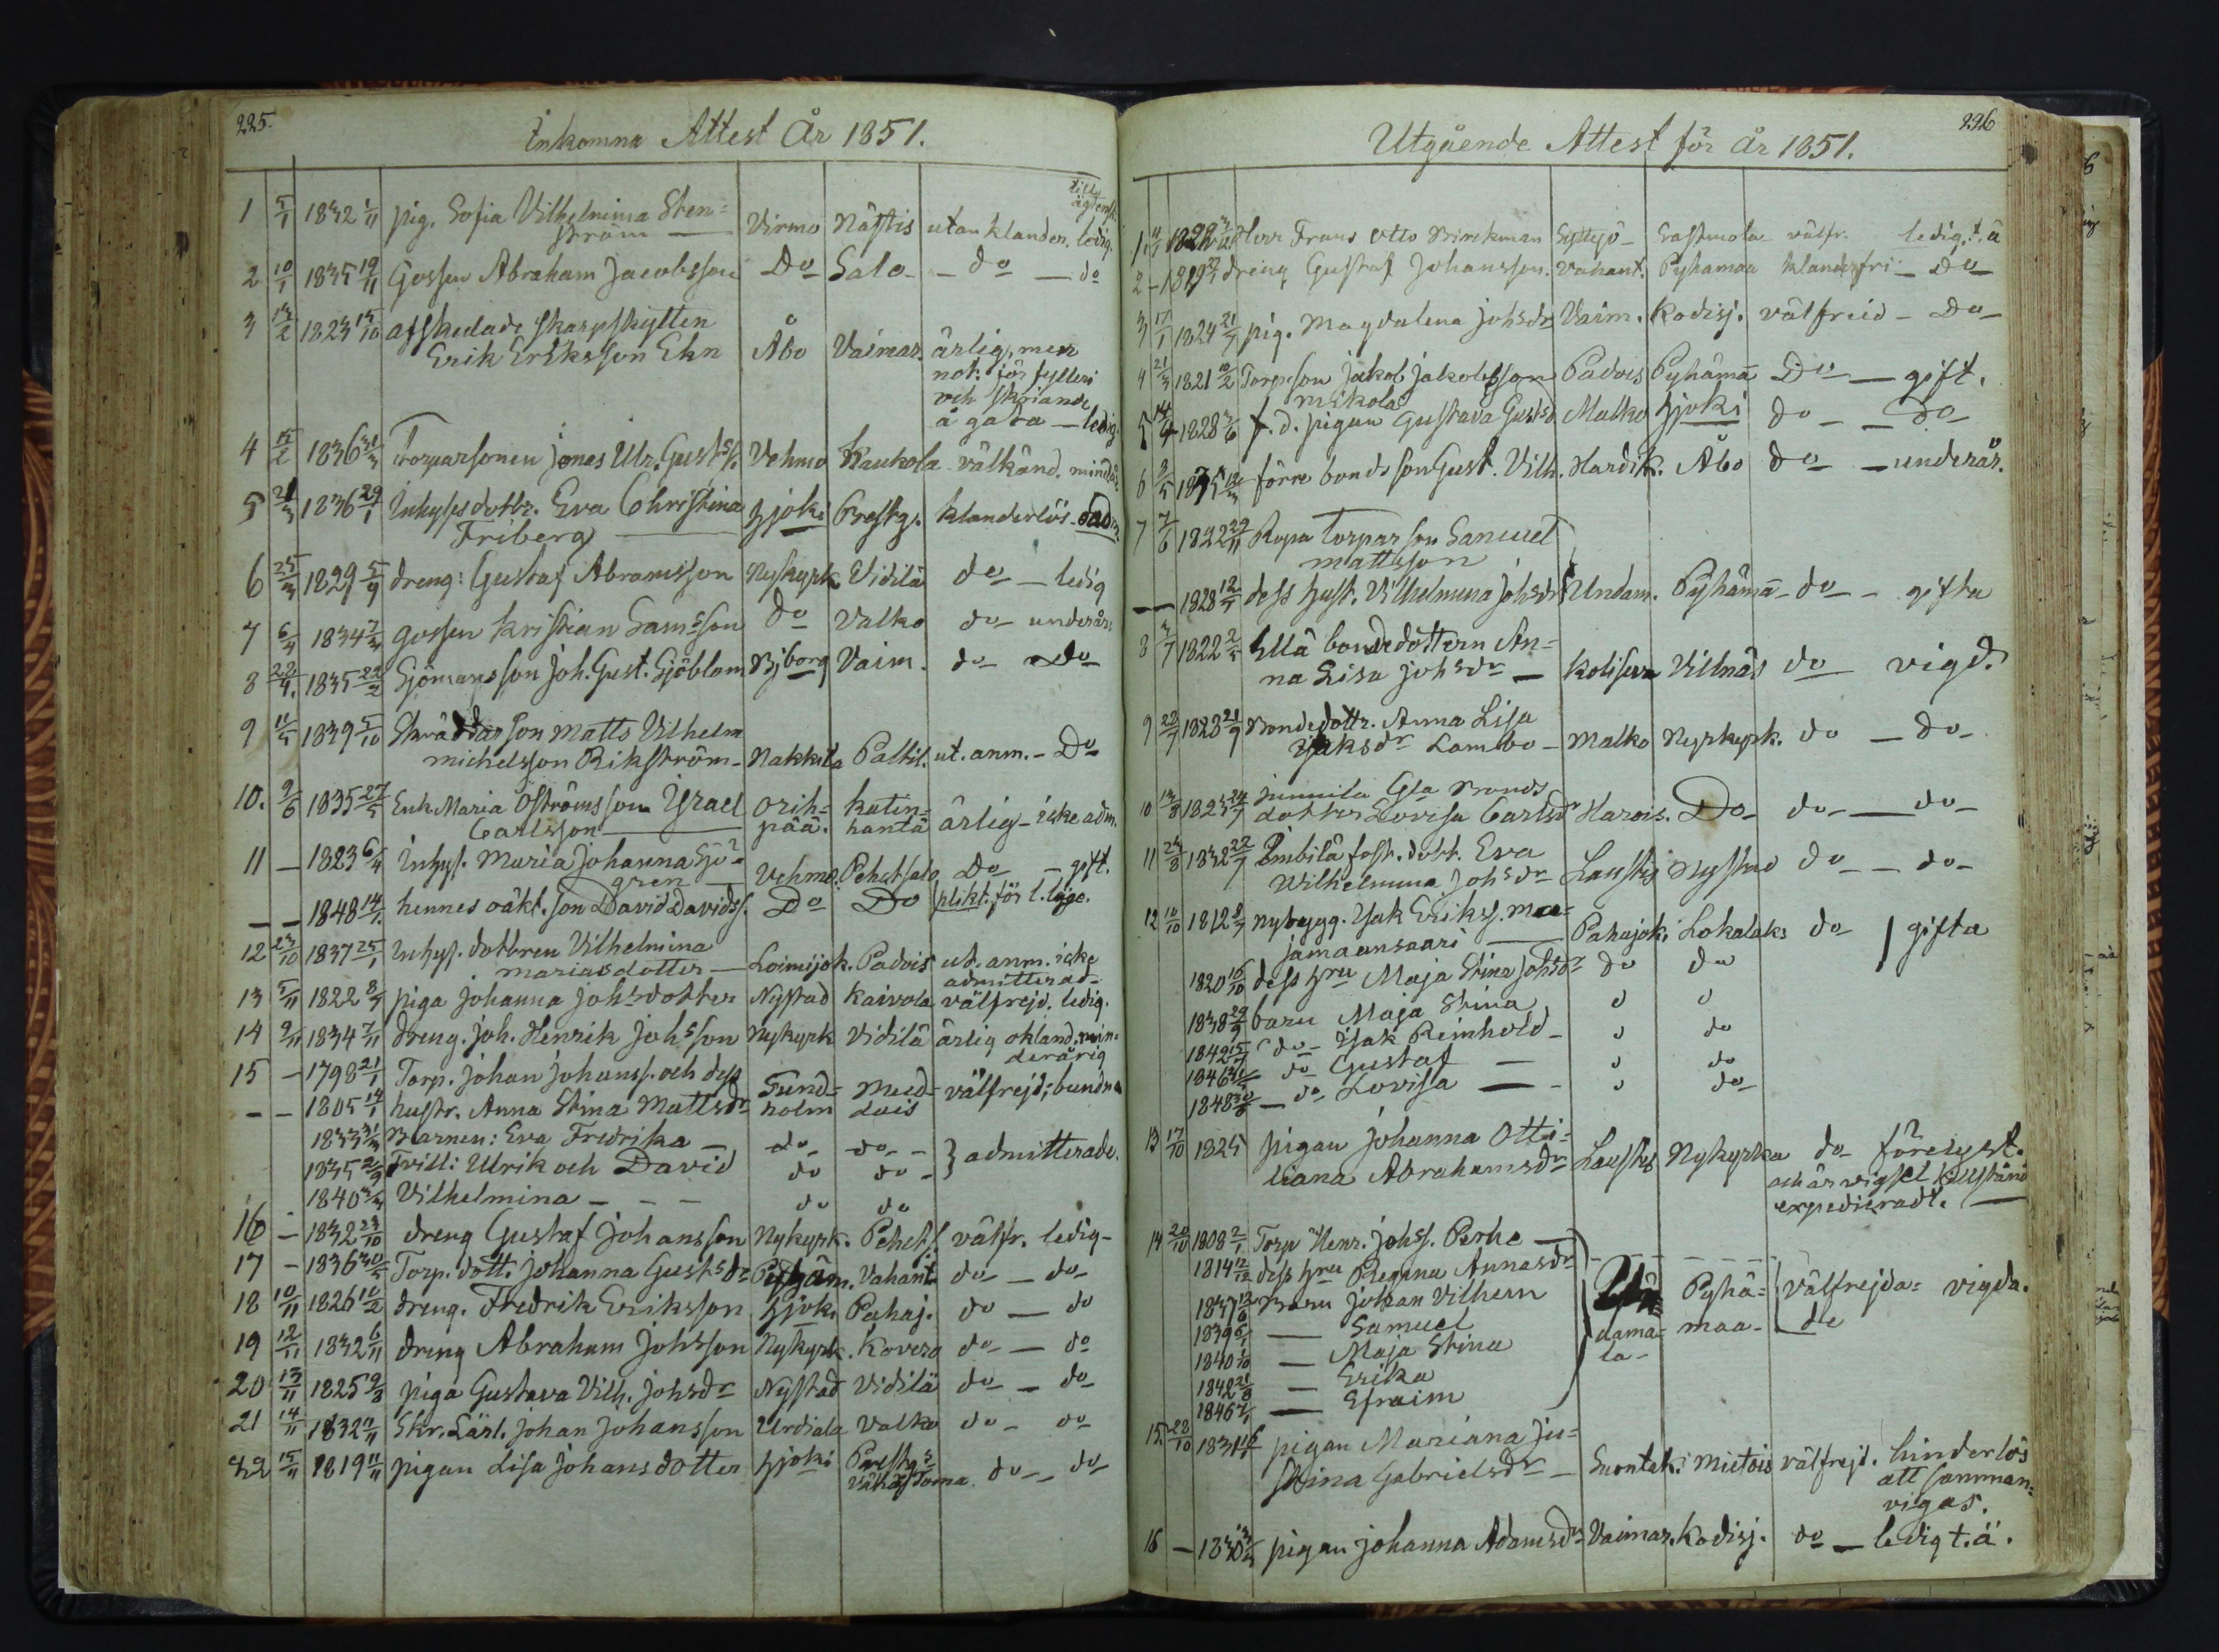 225.
Inkomna Attest År 1851.
1 5/1 1832 1/11 pig. Sofia Vilhelmina Sten=
ström — Virmo Nästis utan klander. ledig. till ägtensk.
2 10/1 1835 19/11 Gossen Abraham Jacobsson Do Salo - do — do
3 13/2 1823 15/10 afskedade skarpskytten
Erik Eriksson Ekn Åbo Vaimar. ärlig, men
not: för fylleri
och skriande
å gata — ledig.
4 15/2 1836 31/3 Torparsonen Jonas Ulr. Gusts s. Vehmo Kaukola välkänd. mindår.
5 21/3 1836 29/1 Inhysesdottr. Eva Christina Hjoki Prestg. klanderlös
Friberg
6 25/3 1829 5/9 dreng: Gustaf Abramsson Nykyrk Vidilä do — ledig
7 6/4 1834 7/3 gossen Kristian Samsson do Valko do underår.
8 22/4 1835 22/2 Sjömansson Joh. Gust. Sjöblom Bjborg Vaim. do do
9 11/5 1839 5/10 Skräddarson Matts Vilhelm
Michelsson Rikström - Nakkila Paltil. ut. anm. - Do
10. 9/6 1835 27/5 Enk. Maria Öströms son Israel Orih= katin=
Carlsson pää. hantä ärlig - icke adm.
11 — 1823 6/4 Inhys. Maria Johanna Sjö=
gren — Vehmo. Pehetsalo Do — gift.
— — 1848 14/1 hennes oäkt. son David Davidss. Do Do plikt. för l. läge.
12 23/10 1837 25/1 Inhys. dottren Vilhelmina
mariasdotter — Loimijok. Padvis ut. anm. icke
admitterad -
13 5/11 1822 8/7 piga Johanna Johsdotter Nystad Kaivola välfrejd. ledig.
14 9/11 1834 7/11 dreng. Joh. Henrik Johsson Nykyrk Vidilä ärlig okland. min=
derårig
15 — 1798 21/1 Torp. Johan Johanss. och dess Sund= Med= välfrejd; bundna
— — 1805 14/1 hustr. Anna Stina Mattsdr holm
1833 31/3 Barnen: Eva Fredrika — do do - } admitterade.
1835 2/9 Tvill: Ulrik och David do do -
1840 Vilhelmina - - - do do
16 — 1832 23/10 dreng Gustaf Johansson Nykyrk. Pehets. välfr. ledig -
17 — 1836 30/5 Torp. dott. Johanna Gustsdr Pyhäm. Vahant. do — do
18 10/11 1826 10/2 dreng. Fredrik Eriksson Hjoki Pahaj. do — do
19 12/11 1832 6/11 dreng Abraham Johsson Nykyrk. Kovero do — do
20 13/11 1825 9/3 piga Gustava Vilh. Johsdr Nystad Vidilä do — do
21 14/11 1832 11/11 Skr. Lärl. Johan Johansson Urdiala Valko do - do
22 15/11 1819 11/11 pigan Lisa Johansdotter Hjoki Prestgs
do - do
226
Utgående Attest för år 1851.
1. Herr Frans Otto Brinkman Sastmola välfr. ledig. t. ä
2 — 1819 dreng Gustaf Johansson. Vahant. Pyhämaa klanderfri — Do
3 17/1 1824 21/7 pig. Magdalena Johsdr Vaim. Kodisj. välfreid — Do
4 21/3 1821 10/2 Torp. son Jakob Jakobsson Padvis Pyhämä Do — gift.
Mikola
5 14/4 1828 3/6 f. d. pigan Gustava Gustsd Malko Hjoki do — Do
6 3/5 1835 13/3 förre bondsson Gust. Vilh. Hardik. Åbo do — underår.
7 7/6 1822 29/11 Ropa Torparson Samuel
Mattsson
— 1828 12/5 dess hust. Vilhelmina Johsdr Undam. Pyhämä do — gifta
8 3/7 1822 2/5 Yllä bondedottern An=
na Lisa Johsdr — Koliseva Villnäs do — vigd.
9 22/7 1828 21/9 Bondedottr. Anna Lisa
Isaksdr Lambo — Malko Nykyrk. do — do
10 13/8 1823 24/7 Junnila Gla Bonds
dotter Lovisa Carlsd Harois. Do do — do
11 24/8 1832 22/7 Pimbilä fost. dott. Eva
Wilhelmina Johsdr Laustis Nystad do — do
12 10/10 1812 8/7 nybygg. Isak Erikss. Ma=
jamaansaari — Pahajoki Lokalaks do gifta
1820 16/10 dess hru Maja Stina Johsdr do do
1838 29/9 barn Maja Stina
1842 do Isak Reinhold - do
1846 do Gustaf — do
1848 — do Lovisa — do
13 17/10 1825 pigan Johanna Otti=
liana Abrahamsdr Laustis Nykyrka do förelyst.
och är vigsel tillstånd
expedieradt. —
14 20/10 1808 2/1 Torp Henr. Johss. Perhe —
1814 12/12 dess hru Regina Annasdr Un= Pyhä= välfrejda= vigda.
1837 13/6 Barn Johan Vilhem dama= maa - de
1839 6/1 — Samuel la -
1840 1/10 — Maja Stina
1842 21/8 — Erika
1846 7/1 — Efraim
15 28/10 1831 pigan Mariana Ju=
stina Gabrielsdr — Suontak. Mietois välfrejd. hinderlös
att samman=
vigas.
16 — 1830 pigan Johanna Adamsdr Vaimar. Kodisj. do — ledig t. ä.